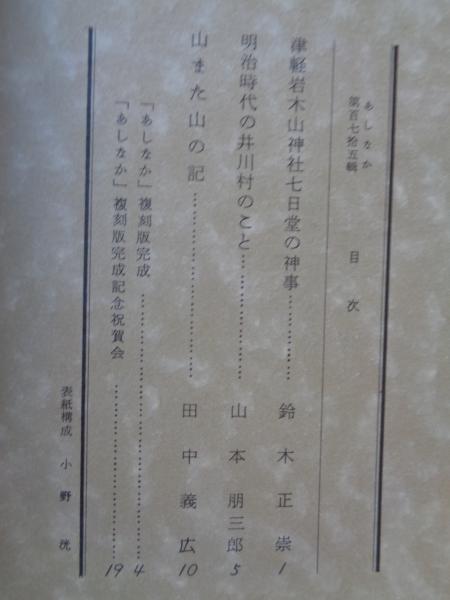 あしなか
第百七拾五輯 目次
津軽岩木山神社七日堂の神事……………鈴木正崇 1
明治時代の井川村のこと……………山本朋三郎 5
山また山の記……………田中義広 10
「あしなか」復刻版完成……………4
「あしなか」復刻版完成記念祝賀会……………19
表紙構成 小野洸